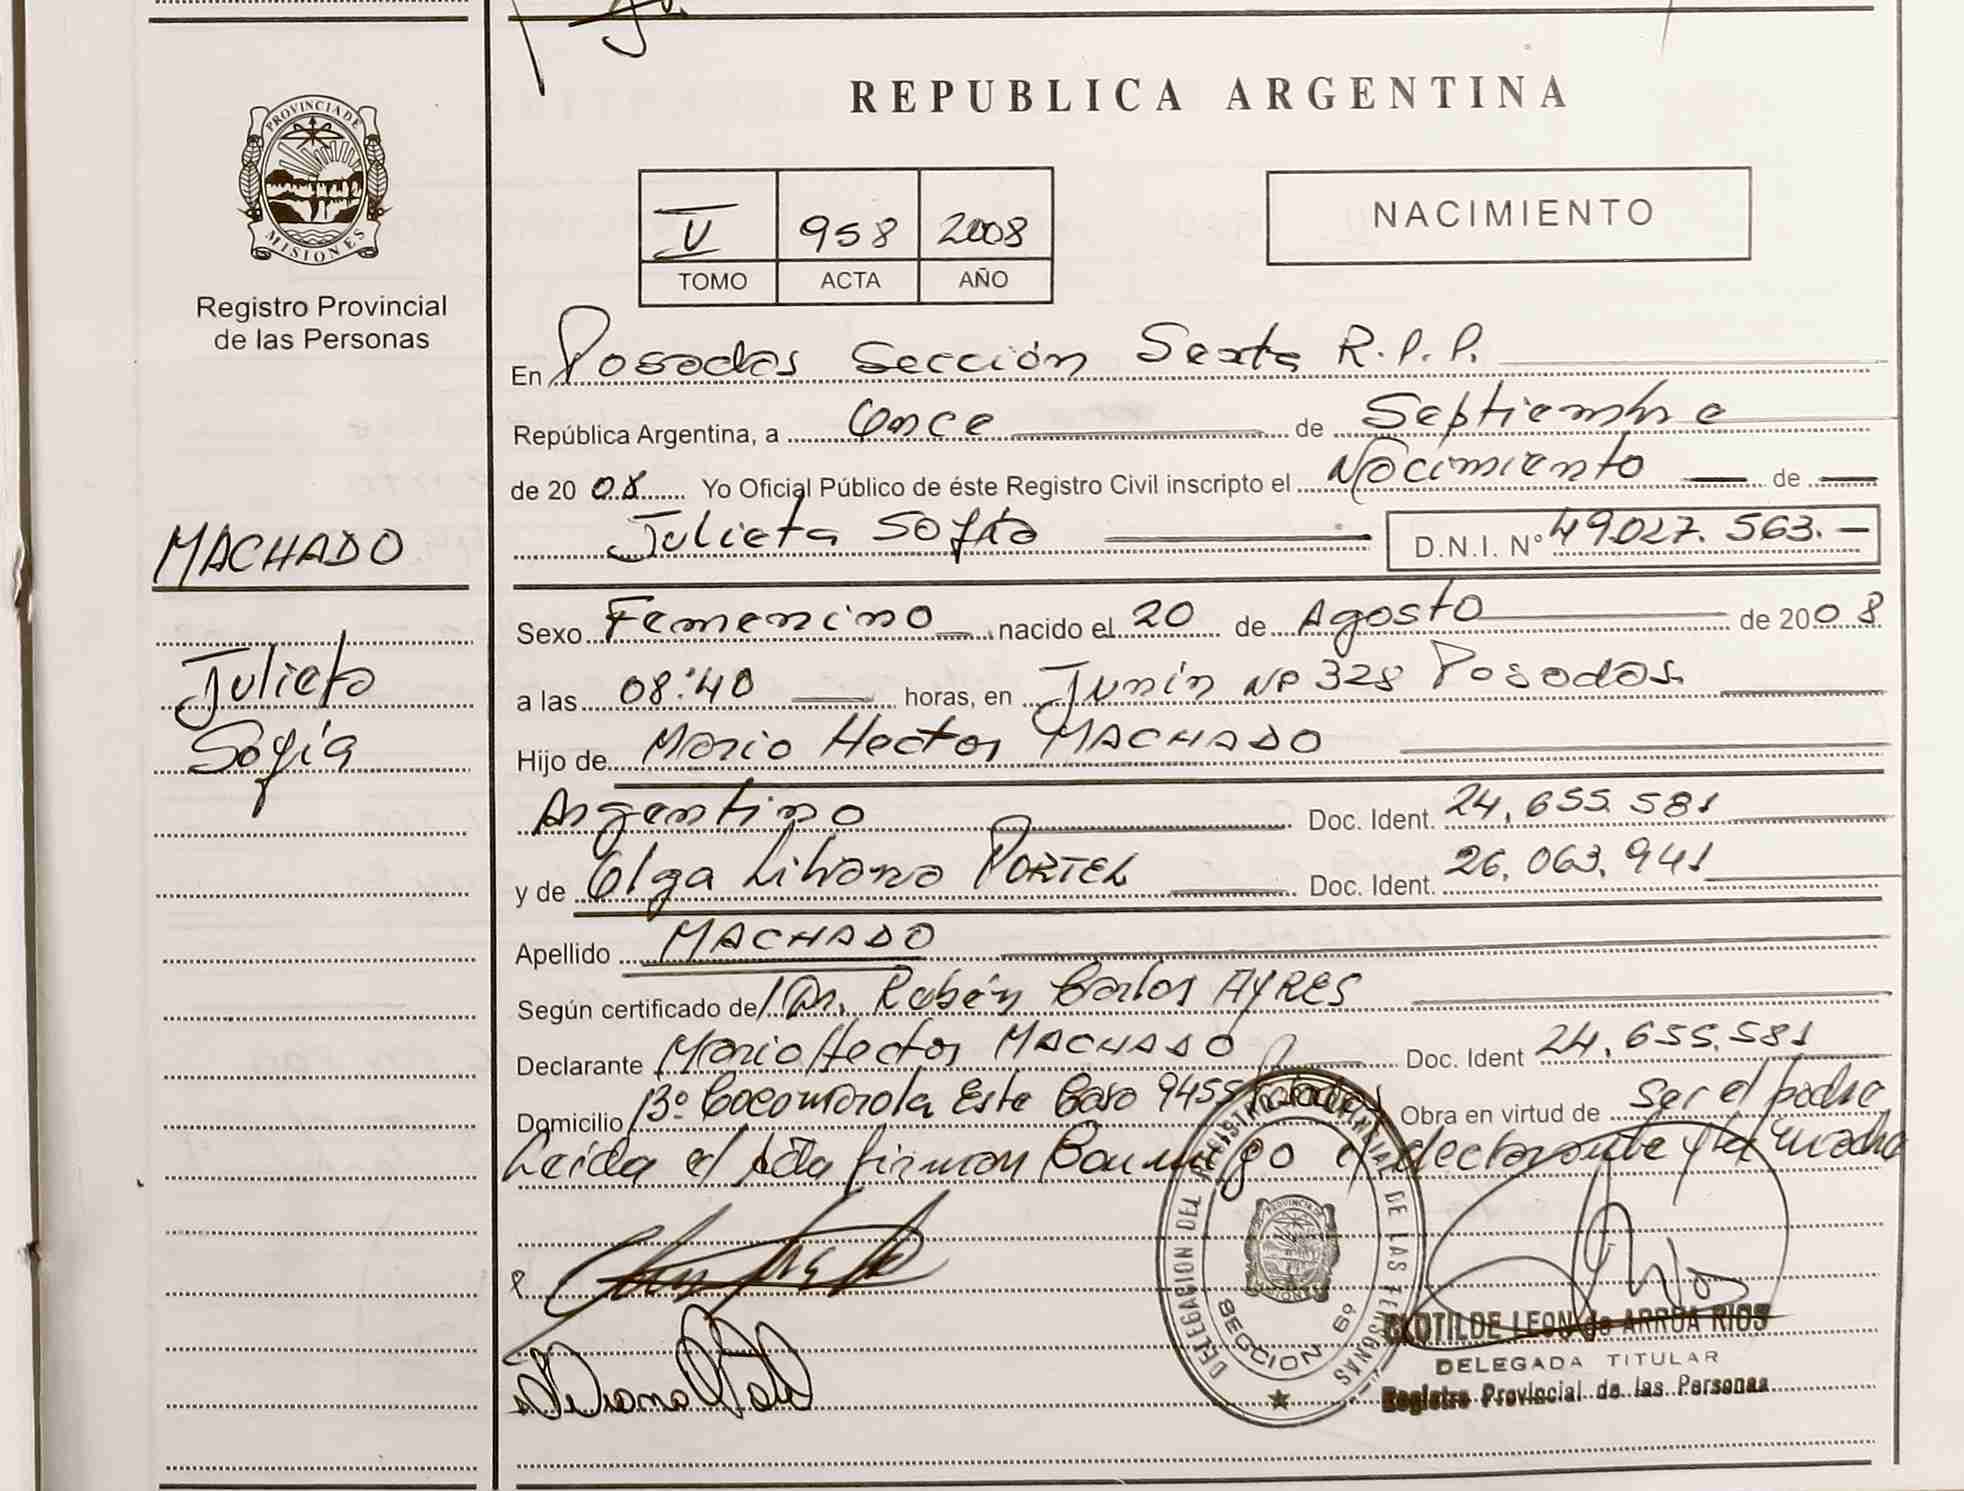 REPUBLICA ARGENTINA
PROVINCIA DE
MISIONES
Registro Provincial
de las Personas
V 958 2008
TOMO ACTA AÑO
NACIMIENTO
En Posadas Sección Sexta R.P.P.
República Argentina, a Once de Septiembre
de 2008 Yo Oficial Público de éste Registro Civil inscripto el Nacimiento de
Julieta Sofía D.N.I. Nº 49.027.563.-
MACHADO
Julieta
Sofía
Sexo Femenino nacido el 20 de Agosto de 2008
a las 08:40 horas, en Junín Nº 328 Posadas.
Hijo de Mario Hector MACHADO
Argentino Doc. Ident. 24.655.581
y de Olga Liliana PORTEL Doc. Ident. 26.063.941
Apellido MACHADO
Según certificado de Dr. Rubén Carlos AYRES
Declarante Mario Hector MACHADO Doc. Ident 24.655.581
Domicilio Bº Cocomarola Este Casa 9455 Posadas Obra en virtud de ser el padre
Leída el Acta firman Conmigo el declarante y la madre
DELEGACION DEL REGISTRO PROVINCIAL DE LAS PERSONAS
PROVINCIA DE
MISIONES
SECCION 6º
CLOTILDE LEON de ARRUA RIOS
DELEGADA TITULAR
Registro Provincial de las Personas